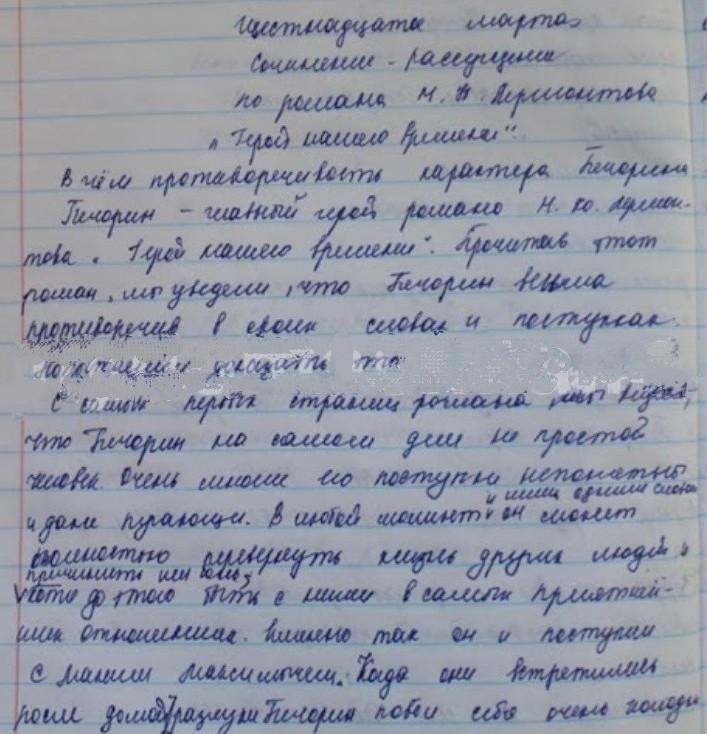 Шестнадцатое марта
Сочинение - рассуждение
по романа М. Ю. Лермонтова
„Герой нашего времени".
В чём противоречивость характера Печорина
Печорин - главный герой романа М. Ю. Лермон-
това „Герой нашего времени". Прочитав этот
роман, мы увидели, что Печорин весьма
противоречив в своих словах и поступках.
доказать это
С самых первых страниц романа, мы
что Печорин на самом деле не простой
человек. Очень многие его поступки непонятны
и даже пугающи. В любой момент он сможет
и лишь одним словом
полностью перевернуть жизнь других людей и
причинить им боль,
хотя до этого быть с ними в самых приятней-
ших отношениях. Именно так он и поступил
с Максим Максимычем. Когда они встретились
после долгой разлуки Печорин повел себя очень холодно